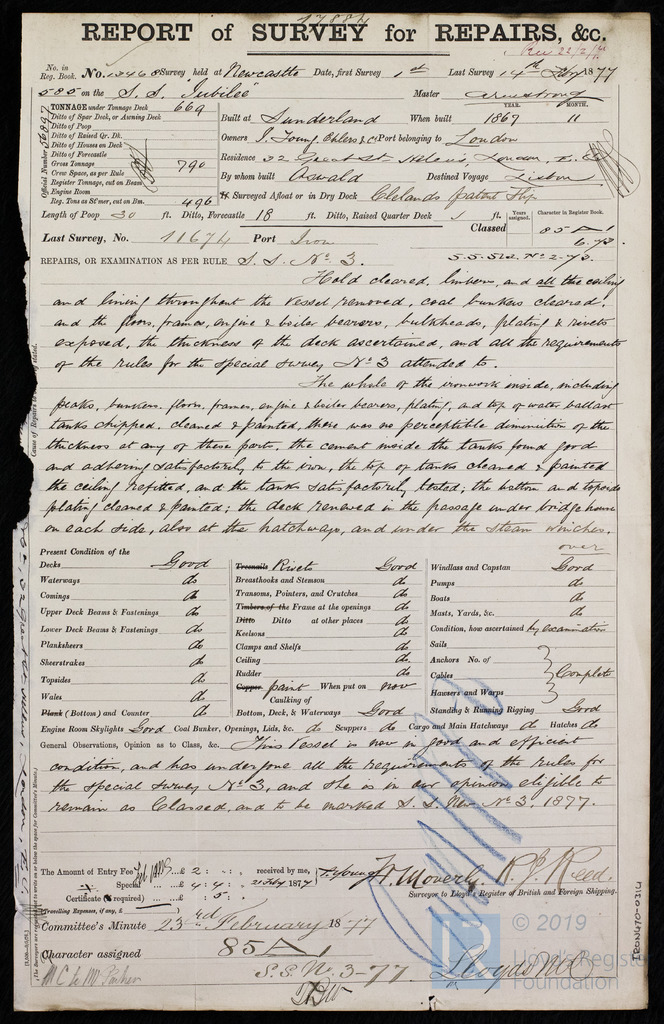 17884
REPORT of SURVEY for REPAIRS, &c.
Rec 22/2/77
No. in Reg. Book. No. 13468 Survey held at Newcastle Date, first Survey 1st Last Survey 14th Feby 1877
585 on the S.S. Jubilee Master Armstrong
TONNAGE under Tonnage Deck 669
Ditto of Spar Deck, or Awning Deck
Ditto of Poop
Ditto of Raised Qr. Dk.
Ditto of Houses on Deck
Ditto of Forecastle
Gross Tonnage 790
Crew Space, as per Rule
Register Tonnage, cut on Beam
Engine Room
Reg. Tons as St'mer, cut on Bm. 496
Official Number 56897
YEAR. MONTH.
Built at Sunderland When built 1867 11
Owners J. Young, Ehlers & Co Port belonging to London
Residence 32 Great St. Helens, London, E.C.
By whom built Oswald Destined Voyage Lisbon
If Surveyed Afloat or in Dry Dock Clelands patent Slip
Length of Poop 30 ft. Ditto, Forecastle 18 ft. Ditto, Raised Quarter Deck ft.
Years assigned. Character in Register Book.
Classed 85 A1
6.73.
Last Survey, No. 11674 Port Iron
S.S. Sld. No 2-73.
REPAIRS, OR EXAMINATION AS PER RULE S. S. No. 3.
Hold cleared, limbers, and all the ceiling
and lining throughout the vessel removed, coal bunkers cleared,
and the floors, frames, engine & boiler bearers, bulkheads, plating & rivets
exposed, the thickness of the deck ascertained, and all the requirements
of the rules for the special survey No. 3 attended to.
The whole of the ironwork inside, including
peaks, bunkers, floors, frames, engine & boiler bearers, plating, and top of water ballast
tanks chipped, cleaned & painted, there was no perceptible diminution of the
thickness at any of these parts, the cement inside the tanks found good
and adhering satisfactorily to the iron, the top of tanks cleaned & painted
the ceiling refitted, and the tanks satisfactorily tested; the bottom and topside
plating cleaned & painted; the deck renewed in the passage under bridge house
on each side, also at the hatchways, and under the steam winches.
over
Present Condition of the
Decks Good
Waterways do
Comings do
Upper Deck Beams & Fastenings do
Lower Deck Beams & Fastenings do
Planksheers do
Sheerstrakes do
Topsides do
Wales do
Plank (Bottom) and Counter do
Treenails Rivets Good
Breasthooks and Stemson do
Transoms, Pointers, and Crutches do
Timbers of the Frame at the openings do
Ditto Ditto at other places do
Keelsons do
Clamps and Shelfs do
Ceiling do.
Rudder do
Copper paint When put on now
Caulking of
Bottom, Deck, & Waterways Good
Windlass and Capstan Good
Pumps do
Boats do
Masts, Yards, &c. do
Condition, how ascertained by examination
Sails
Anchors No. of
Cables Complete
Hawsers and Warps
Standing & Running Rigging Good
Engine Room Skylights Good Coal Bunker, Openings, Lids, &c. do Scuppers do Cargo and Main Hatchways do Hatches do
General Observations, Opinion as to Class, &c. This Vessel is now in good and efficient
condition, and has undergone all the requirements of the rules for
the special survey No. 3, and she is in our opinion eligible to
remain as Classed, and to be marked S. S. New. No. 3. 1877.
The Amount of Entry Fee £ 2 : : received by me,
Special £ 4 : 4 : 21 Feby 1877
Certificate (if required) : 5 :
Travelling Expenses, if any, £
H. Moverly. R. J. Reed.
Surveyor to Lloyd's Register of British and Foreign Shipping.
Committee's Minute 23rd February 1877
Character assigned 85 A1
S.S. N. 3-77. Lloyds MC
IRON470-0211U
© 2019
Lloyd's Register
Foundation